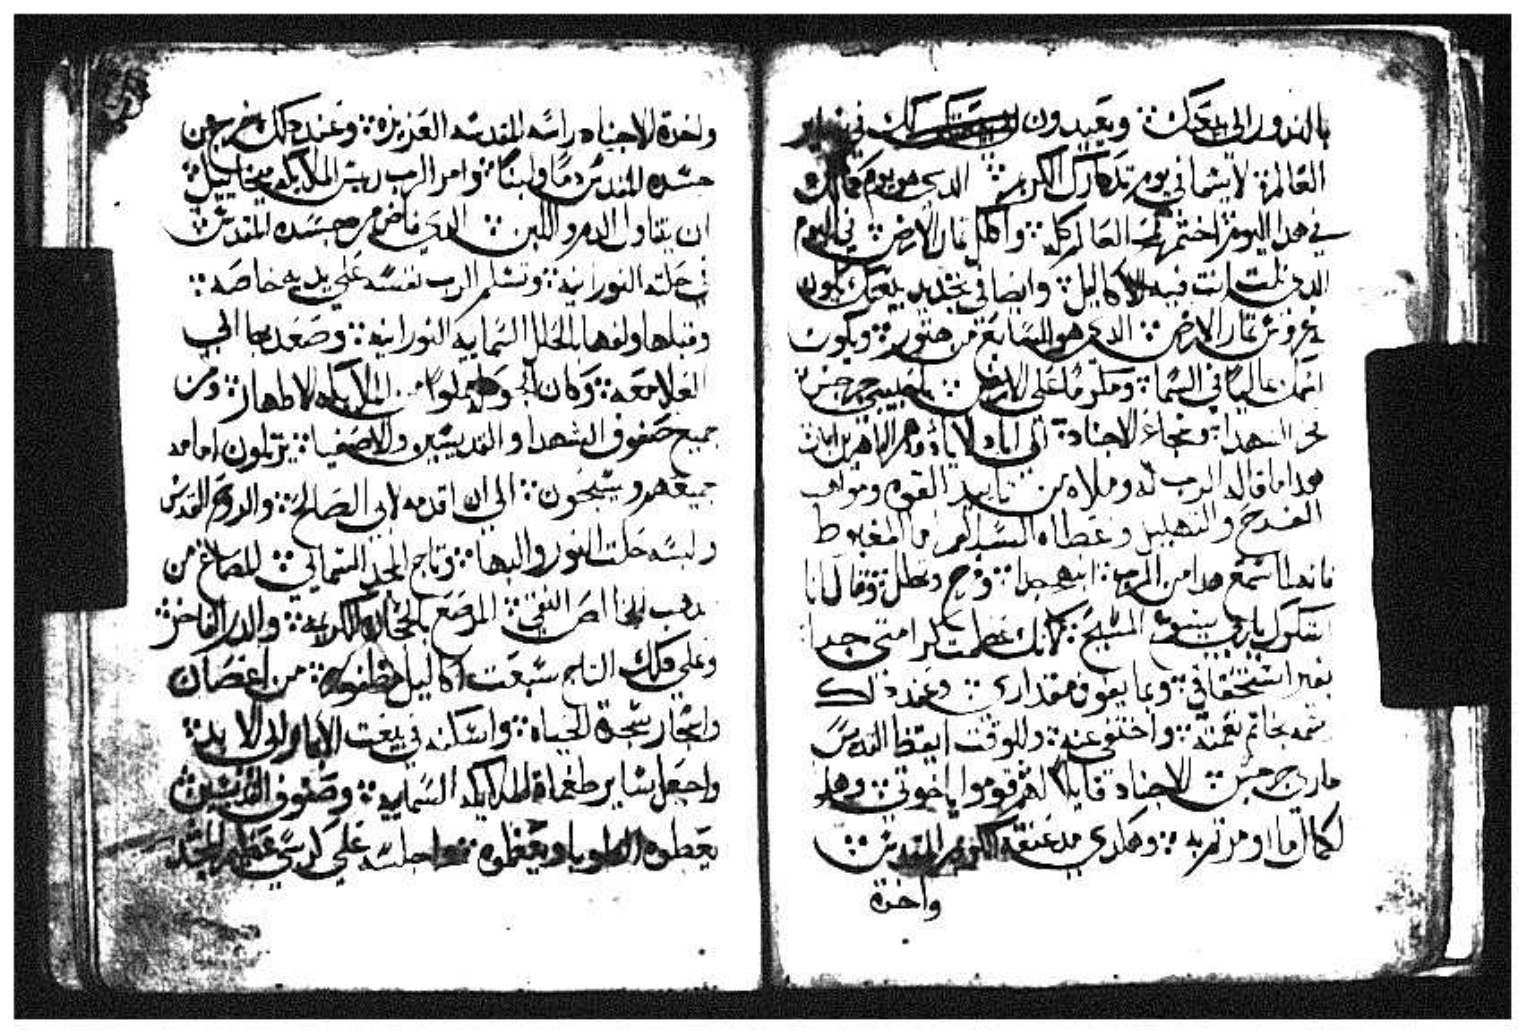 بالندور الى بيعتك ܀ ويعيدون لك في
العالم ܀ لاسيما في يوم تدكارك الكريم ܀ الدي هو يوم
في هدا اليوم اختم العالم كله ܀ واكلل تمار الارض ܀ في اليوم
الدي نلت انت فيه الاكاليل ܀ وايضا في تجديد بيعتك تكون
غروس تمار الارض ܀ الدي هو السابع من هتور ܀ ويكون
اسمك عاليا في السما ܀ ومكروما على الارض ܀ ياحبيبي جرجس
فخر الشهدا ܀ وشجاع الاجناد ܀ الى اباد الاباد ودهر الداهرين امين
هدا ما قاله الرب له وملاه من تاييد القوه ومواهب
الفرح والتهليل وعطاه السلام ܀ اما المغبوط
فانه لما سمع هدا من الرب ܀ ابتهج جدا ܀ وفرح وتهلل ܀ وقال انا
اشكرك ياربي يسوع المسيح ܀ لانك عظمت كرامتي جدا
بغير استحقاقي ܀ وبما يفوق مقداري ܀ وعند دلك
ختمه بخاتم نعمته ܀ واختفى عنه ܀ وللوقت ايقظ القديس
ماري جرجس ܀ الاجناد قايلا لهم قوموا يا اخوتي ܀ وهلم
لكمال ما اومرتم به ܀ ومد عنقه الكريم المقدس ܀
واخدة
واخدة الاجناد راسه المقدسه العزيزه ܀ وعند دلك خرج من
جسده المقدس دما ولبنا ܀ وامر الرب ريس الملايكه ميخاييل ܀
ان يتناول الدم واللبن ܀ الدي فاض من جسده المقدس ܀
في حلته النورانيه ܀ وتسلم الرب نفسه على يديه خاصه ܀
وقبلها ولفها بالحلل السماييه النورانيه ܀ وصعد بها الى
العلا معه ܀ وكان الجو مملوا من الملايكه الاطهار ܀ ومن
جميع صفوف الشهدا والقديسين والاصفيا ܀ يرتلون امامه
جميعهم ويسبحون ܀ الى ان اقدمه لابي الصالح ܀ والروح القدس
ولبسه حلت النور والبها ܀ وتاج المجد السمايي ܀ المصاغ من
دهب الخالص النقي ܀ المرصع بالحجاره الكريمه ܀ والدر الفاخر ܀
وعلى دلك التاج سبعت اكاليل مظفوره ܀ من اغصان
واشجار شجرة الحياه ܀ واسكنه في بيعت الابكار الى الابد ܀
واجعل ساير طغمات الملايكه السماييه ܀ وصفوف القديسين ܀
يعطوه الطوبا ويعظموه ܀ واجلسه على كرسي عظيم المجد